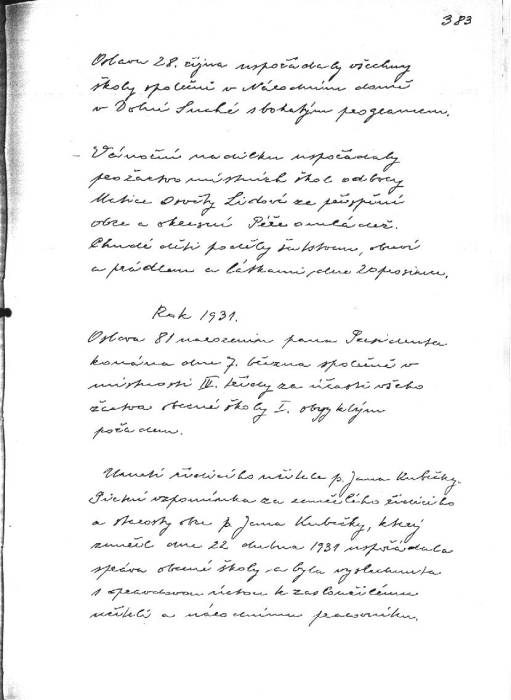 383
Oslavu 28. října uspořádaly všechny
školy společně v Národním domě
v Dolní Suché s bohatým programem.
Vánoční nadílku uspořádaly
pro žactvo místních škol odbory
Matice Osvěty Lidové za přispění
obce a okresní Péče o mládež.
Chudé děti poděly šatstvem, obuví
a prádlem a látkami, dne 20 prosince.
Rok 1931.
Oslava 81 narozenin pana Presidenta
konána dne 7. března společně v
místnosti III. třídy za účasti všeho
žactva obecné školy I. obvyklým
pořadem.
Úmrtí řídícího učitele p. Jana Kubičky.
Pietní vzpomínka za zemřelého řídícího
a starosty obce p. Jana Kubičky, který
zemřel dne 22 dubna 1931 uspořádala
správa obecné školy a byla vyslechnuta
s opravdovou úctou k zasloužilému
učiteli a národnímu pracovníku.